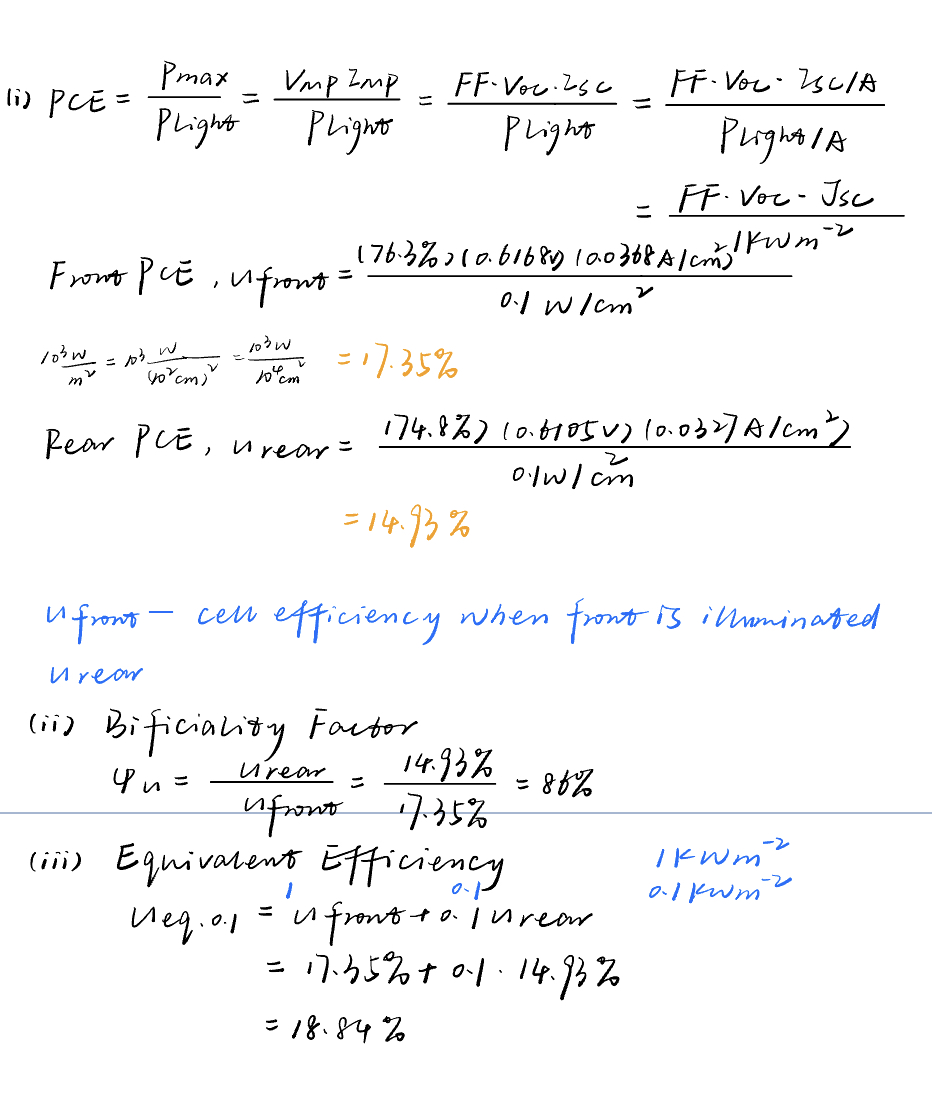 (i) PCE = Pmax / PLight = Vmp Imp / PLight = FF·Voc·Isc / PLight = FF·Voc·Isc/A / PLight/A
= FF·Voc·Jsc / 1kWm⁻²
Front PCE, ηfront = (76.3%)(0.6168V)(0.0368A/cm²) / 0.1 W/cm²
10³W/m² = 10³ W/(10²cm)² = 10³W/10⁴cm² = 17.35%
Rear PCE, ηrear = (74.8%)(0.6105V)(0.0327A/cm²) / 0.1W/cm²
= 14.93%
ηfront — cell efficiency when front is illuminated
ηrear
(ii) Bificiality Factor
φη = ηrear / ηfront = 14.93% / 17.35% = 86%
(iii) Equivalent Efficiency 1kWm⁻²
1 0.1 0.1kWm⁻²
ηeq.0.1 = ηfront + 0.1ηrear
= 17.35% + 0.1 · 14.93%
= 18.84%